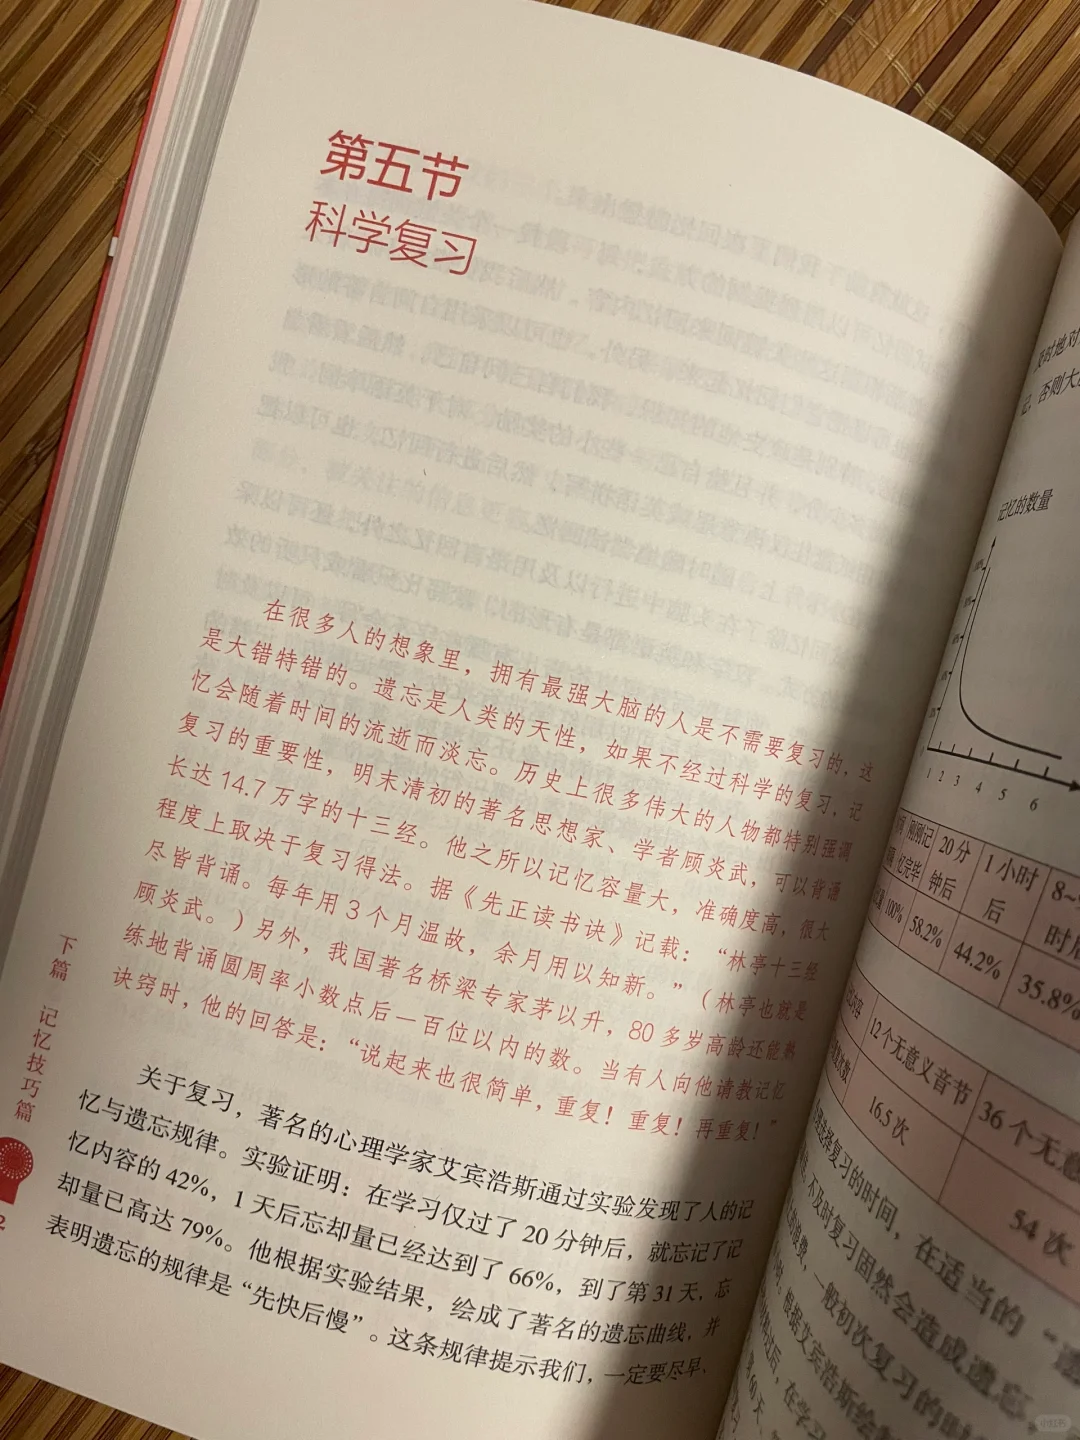 第五节
科学复习
在很多人的想象里，拥有最强大脑的人是不需要复习的，这
是大错特错的。遗忘是人类的天性，如果不经过科学的复习，记
忆会随着时间的流逝而淡忘。历史上很多伟大的人物都特别强调
复习的重要性，明末清初的著名思想家、学者顾炎武，可以背诵
长达 14.7 万字的十三经。他之所以记忆容量大，准确度高，很大
程度上取决于复习得法。据《先正读书诀》记载：“林亭十三经
尽皆背诵。每年用 3 个月温故，余月用以知新。”（林亭也就是
顾炎武。）另外，我国著名桥梁专家茅以升，80 多岁高龄还能熟
练地背诵圆周率小数点后一百位以内的数。当有人向他请教记忆
诀窍时，他的回答是：“说起来也很简单，重复！重复！再重复！”
关于复习，著名的心理学家艾宾浩斯通过实验发现了人的记
忆与遗忘规律。实验证明：在学习仅过了 20 分钟后，就忘记了记
忆内容的 42%，1 天后忘却量已经达到了 66%，到了第 31 天，忘
却量已高达 79%。他根据实验结果，绘成了著名的遗忘曲线，并
表明遗忘的规律是“先快后慢”。这条规律提示我们，一定要尽早、
下篇 记忆技巧篇
及时地对
记，否则大
记忆的数量
1 2 3 4 5 6
刚刚记 20 分 1 小时 8~
忆完毕 钟后 后 时后
100% 58.2% 44.2% 35.8%
12 个无意义音节 36 个无意
16.5 次 54 次
选择复习的时间，在适当的“遗
不及时复习固然会造成遗忘
一般初次复习的时
根据艾宾浩斯绘
在学习
小红书